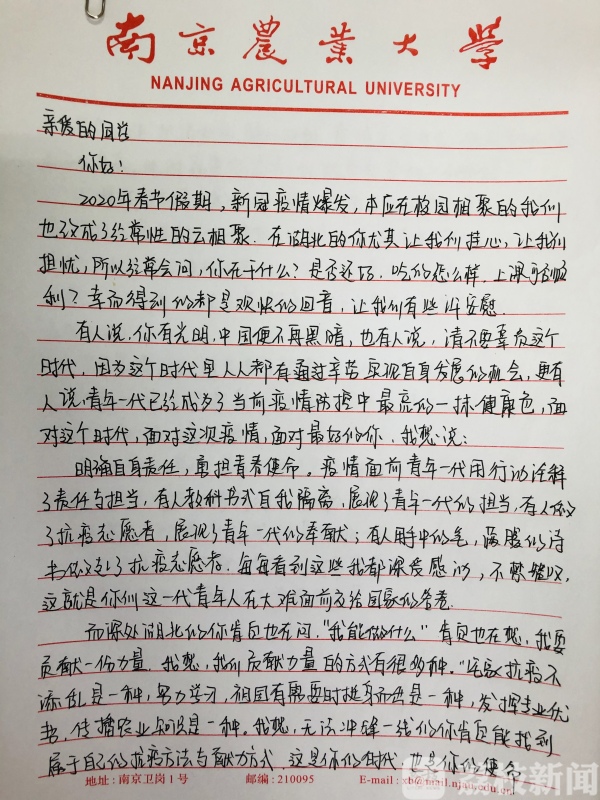 南京农业大学
NANJING AGRICULTURAL UNIVERSITY
亲爱的同学
你好！
2020年春节假期，新冠疫情爆发，本应在校园相聚的我们
也改成了经常性的云相聚．在湖北的你尤其让我们挂心，让我们
担忧，所以经常会问，你在干什么？是否还好．吃的怎么样．上课可否顺
利？幸而得到的都是欢快的回音，让我们有些许安慰．
有人说，你有光明，中国便不再黑暗，也有人说，请不要辜负这个
时代，因为这个时代里人人都有通过辛苦实现自身发展的机会，更有
人说，青年一代已经成为了当前疫情防控中最亮的一抹健康色，面
对这个时代，面对这次疫情，面对最好的你．我想说：
明确自身责任，勇担青春使命。疫情面前青年一代用行动诠释
了责任与担当，有人教科书式自我隔离，展现了青年一代的担当，有人
了抗疫志愿者，展现了青年一代的奉献；有人用手中的笔，满腹的诗
书 了抗疫志愿者．每每看到这些我都深受感 ，不禁
这就是你们这一代青年人在大难面前交给国家的答卷
而深处湖北的你肯定也在问，“我能做什么”肯定也在想，我要
贡献一份力量．我想，我们贡献力量的方式有很多种。“宅家抗疫不
添乱是一种，努力学习，祖国有需要时挺身而出是一种，发挥专业优
，传播农业知识是一种。我想，无论冲锋一线的你肯定能找到
属于自己的抗疫方法与贡献方式．这是你们的时代，也是你们的使命
地址：南京卫岗1号 邮编：210095 E-mail：xb@mail.njau.edu.cn
荔枝新闻